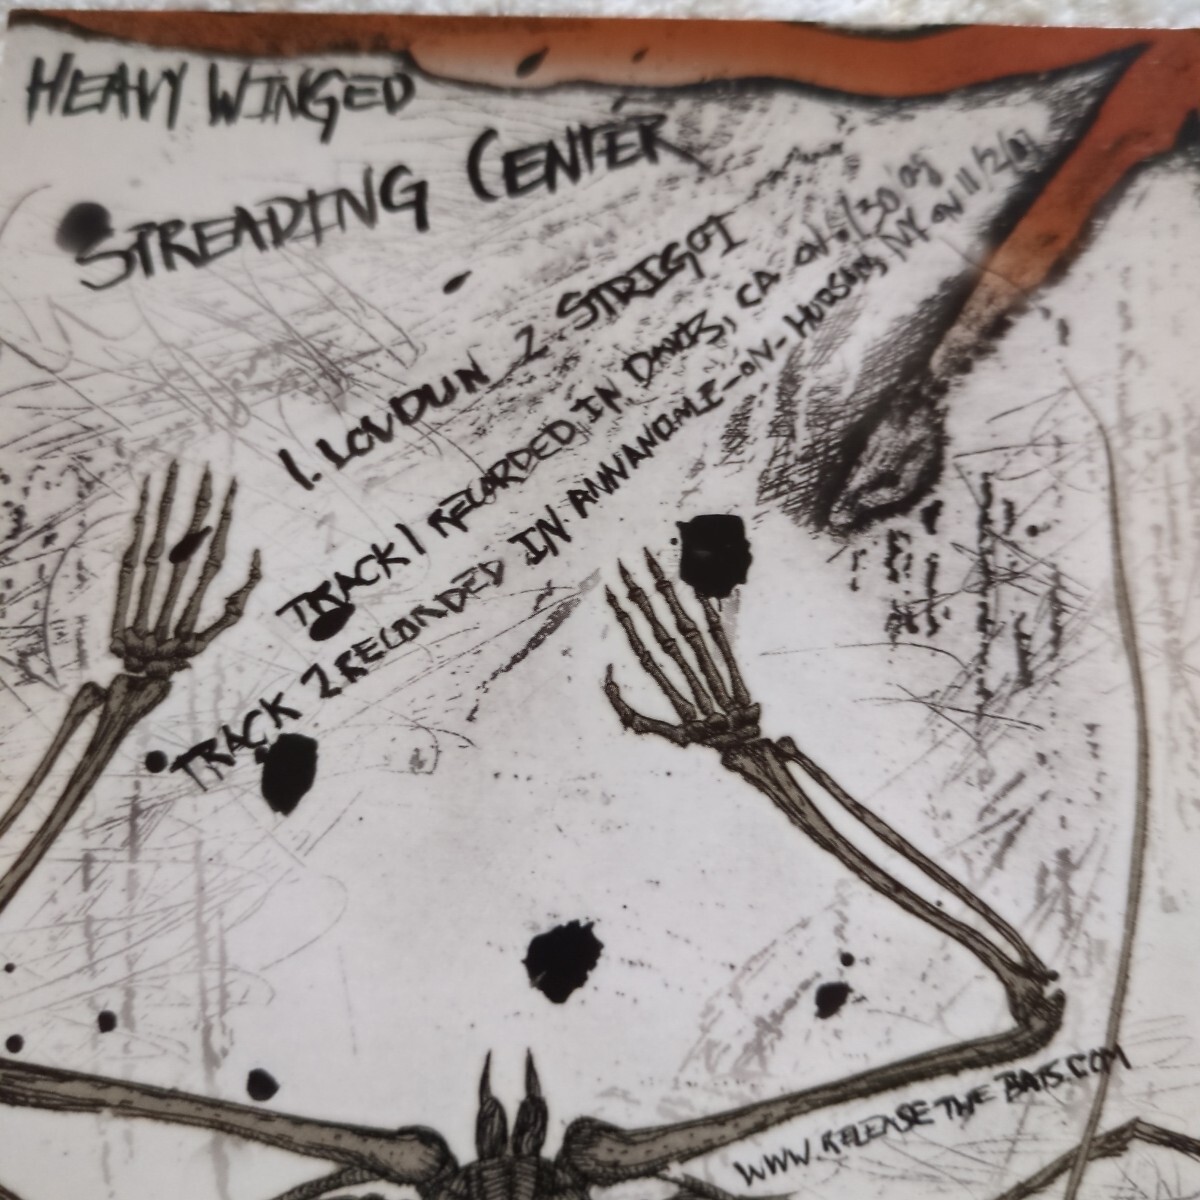 HEAVY WINGED
STREADING CENTER
1. LOUDUN 2 STRIGOI
TRACK 1 RECORDED IN DAVIS, CA ON /30
TRACK 2 RECORDED IN ANNANDALE-ON-HUDSON, NY ON 11/2/
WWW.RELEASE THE BATS.COM